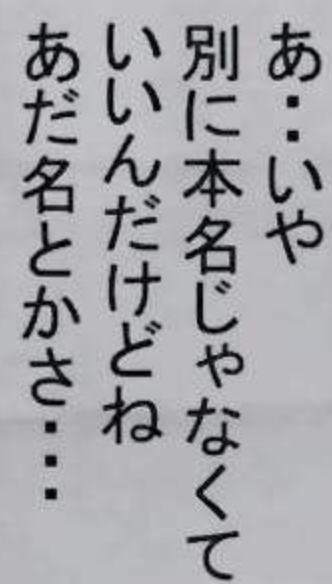 あ・・いや
別に本名じゃなくて
いいんだけどね
あだ名とかさ・・・